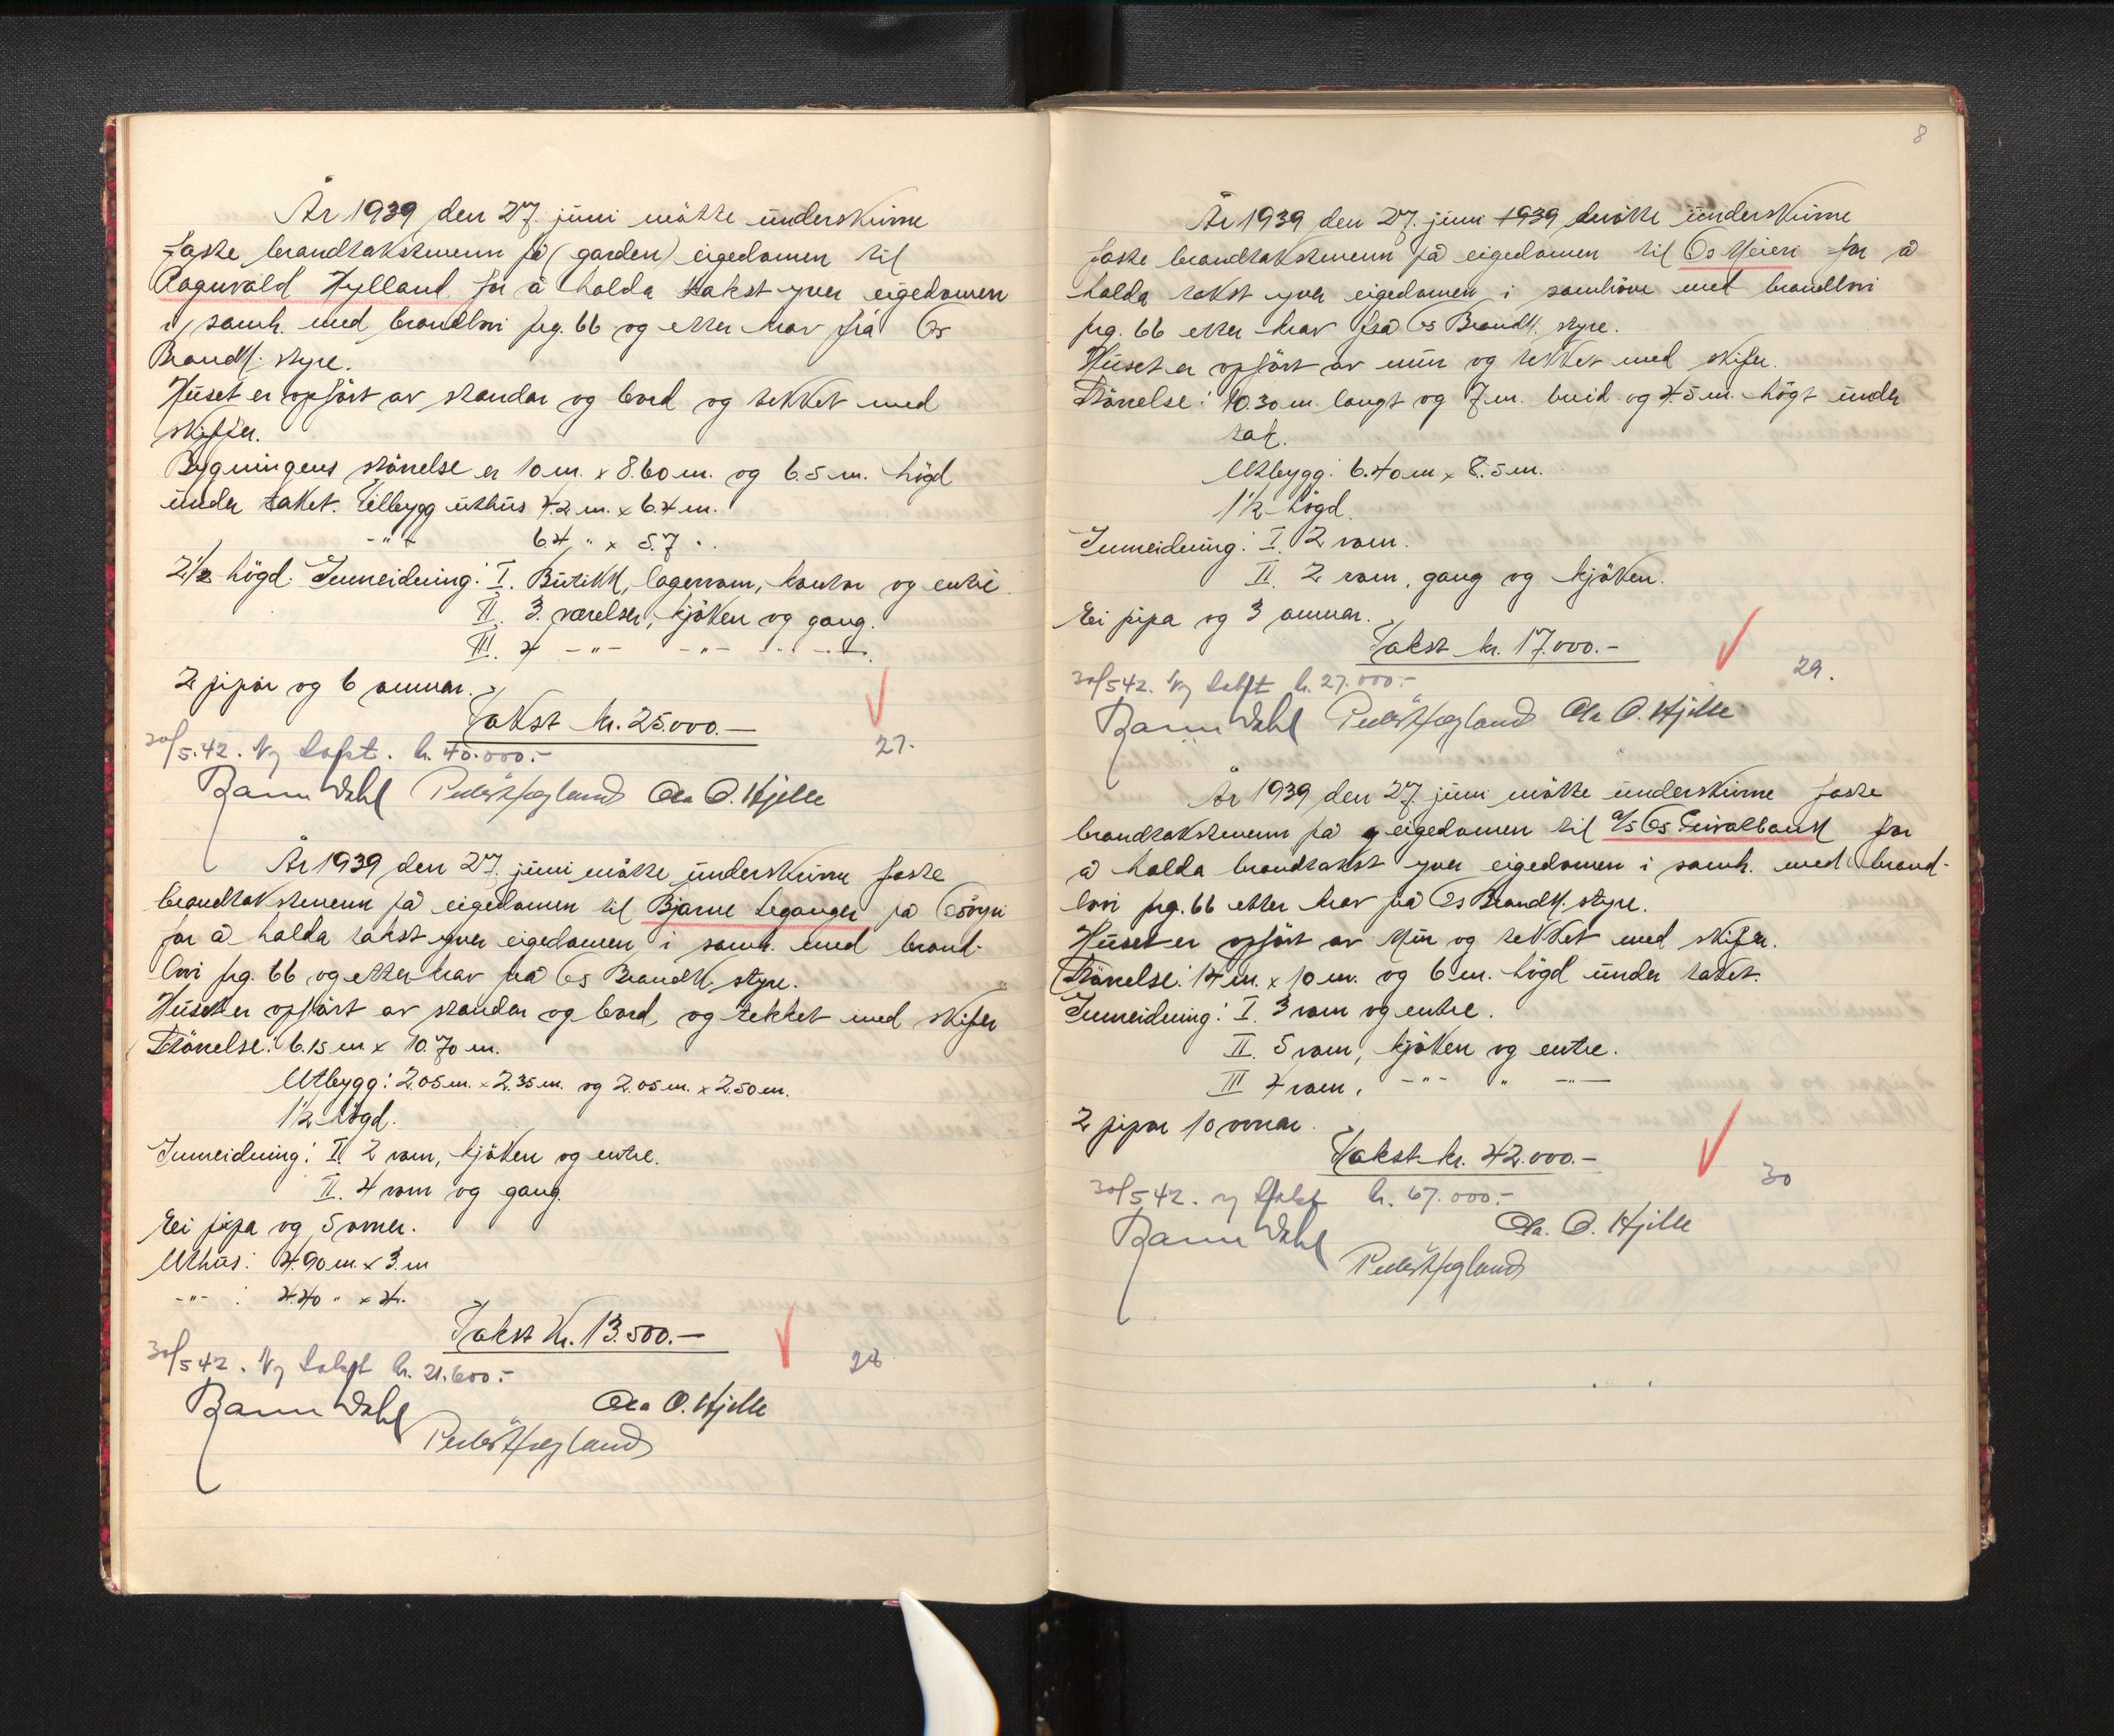 År 1939 den 27. juni møtte underskrivne
faste brandtakstmenn på (garden) eigedomen til
Ragnvald Hylland for å halda takst yver eigedomen
i samh. med brandlovi prg. 66 og etter krav frå Os
Brandk. styre.
Huset er opført av standar og bord og tekket med
skiffer.
Bygningens størrelse er 10 m. x 8.60 m. og 6.5 m. högd
under taket. Tilbygg uthus 4.2 m. x 6.4 m.
-"- 6.4 " x 5.7 "
2½ högd. Innreidning: I. Butikk, lagerrom, kontor og entre
II. 3. værelser, kjøken og gang.
III. 4 -"- -"- -"-
2 pipar og 6 omnar.
Takst kr. 25.000.-
30/5.42. Ny takst. kr. 40.000.-
27.
Dahl Ola O. Hjelle
År 1939 den 27. juni møtte underskrivne faste
brandtakstmenn på eigedomen til Bjarne Leganger på Osøyri
for å halda takst yver eigedomen i samh. med brand-
lovi prg. 66 og etter krav frå Os Brandk. styre.
Huset er opført av standar og bord, og tekket med skifer
Størrelse: 6.15 m x 10.70 m.
Utbygg: 2.05 m. x 2.35 m. og 2.05 m. x 2.50 m.
1½ högd.
Innreidning: I. 2 rom, kjøken og entre.
II. 4 rom og gang.
Ei pipa og 5 omner.
Uthus: 4.90 m. x 3. m
-"- : 4.40 " x 4.
Takst kr. 13.500.-
30/5 42. Ny takst kr. 21.600.-
28
Dahl Ola O. Hjelle
8
År 1939 den 27. juni 1939 møtte underskrivne
faste brandtakstmenn på eigedomen til Os Meieri for å
halda takst yver eigedomen i samhøve med brandlovi
prg. 66 etter krav frå Os Brandk. styre.
Huset er opført av mur og tekket med skifer.
Størrelse: 10.30 m. langt og 7 m. breid og 4.5 m. högt under
tak.
Utbygg: 6.40 m. x 8.5 m.
1½ högd.
Innreidning: I. 2 rom.
II. 2 rom, gang og kjøken.
Ei pipa og 3 omnar.
Takst kr. 17.000.-
30/5 42. Ny takst kr. 27.000.-
29.
Dahl Ola O. Hjelle
År 1939 den 27. juni møtte underskrivne faste
brandtakstmenn på eigedomen til a/s Os Privatbank for
å halda brandtakst yver eigedomen i samh. med brand-
lovi prg. 66 etter krav frå Os Brandk. styre.
Huset er opført av Mur og tekket med skifer.
Størrelse: 14 m. x 10 m. og 6 m. högd under taket.
Innreidning: I. 3 rom og entre.
II. 5 rom, kjøken og entre.
III 4 rom, -"- " -"-
2 pipar 10 omnar.
Takst kr. 42.000.-
30/5 42. ny takst kr. 67.000.-
30
Dahl Ola. O. Hjelle